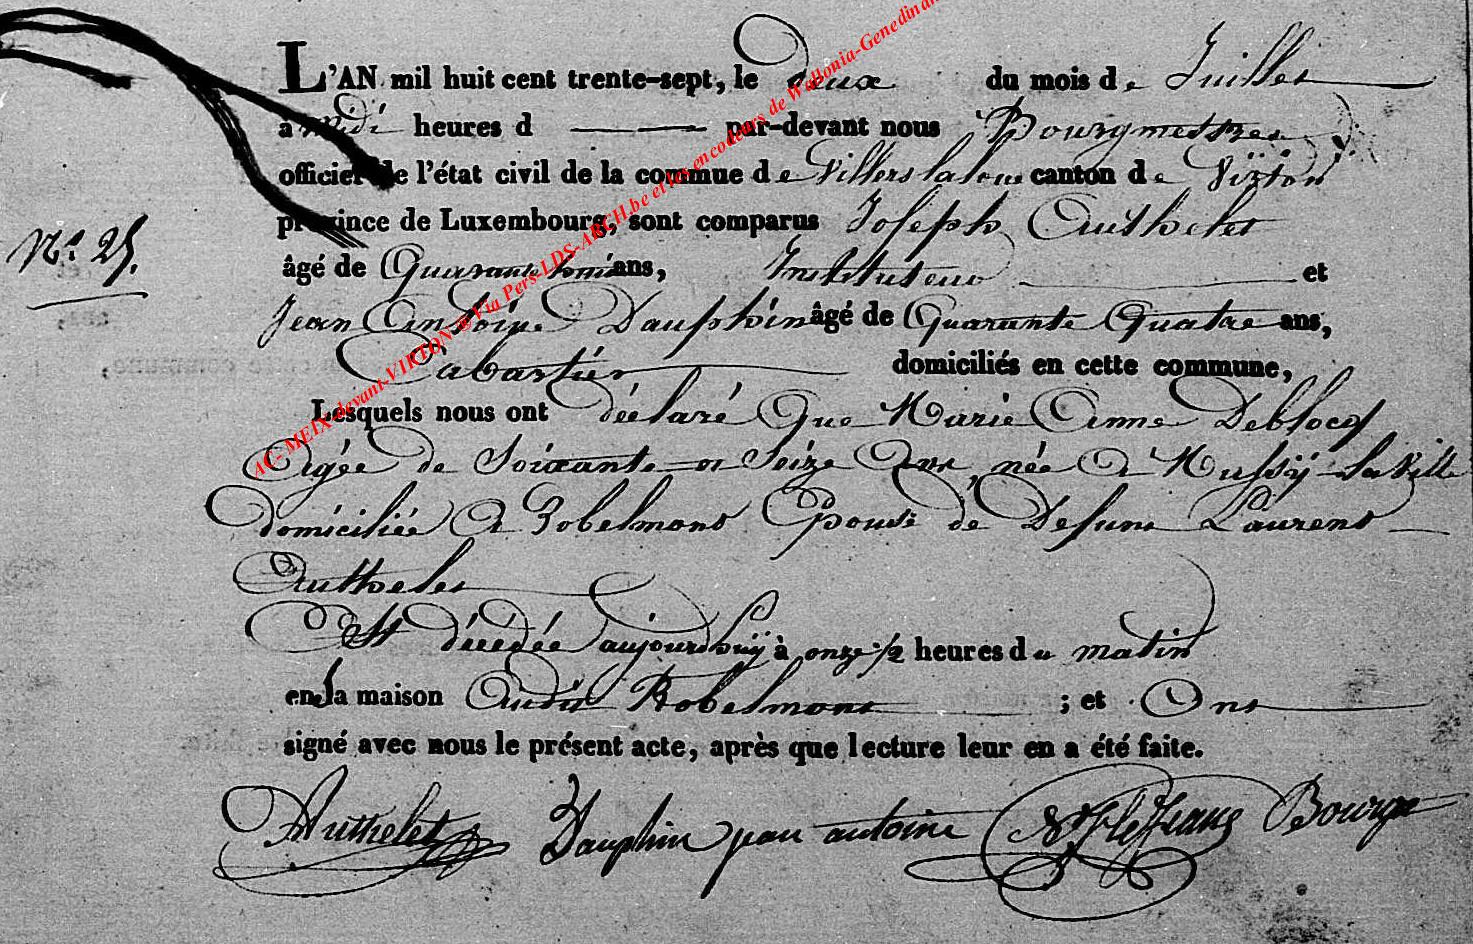 L'AN mil huit cent trente-sept, le deux du mois de Juillet
a midi heures d par-devant nous Bourgmestre
officier de l'état civil de la commue de Villers la loue canton de Virton
province de Luxembourg, sont comparus Joseph Authelet
N.° 25.
âgé de Quarante ans, Instituteur et
Jean Antoine Dauphin âgé de Quarante Quatre ans,
Cabartier domiciliés en cette commune,
Lesquels nous ont déclaré Que Marie Anne Deblocq
Agée de Soixante et Seize Ans née A Mussÿ-la-Ville
domiciliée A Robelmont Epouse de Defunt Laurent
Authelet
Est décédée aujourdhuÿ à onze ½ heures du matin
en la maison Audit Robelmont ; et Ont
signé avec nous le présent acte, après que lecture leur en a été faite.
Authelet Dauphin jean antoine Bourgm
AC- MEIX-devant-VIRTON @Via Pers-LDS-ARCH.be et les encodeurs de Wallonia-Genedinan